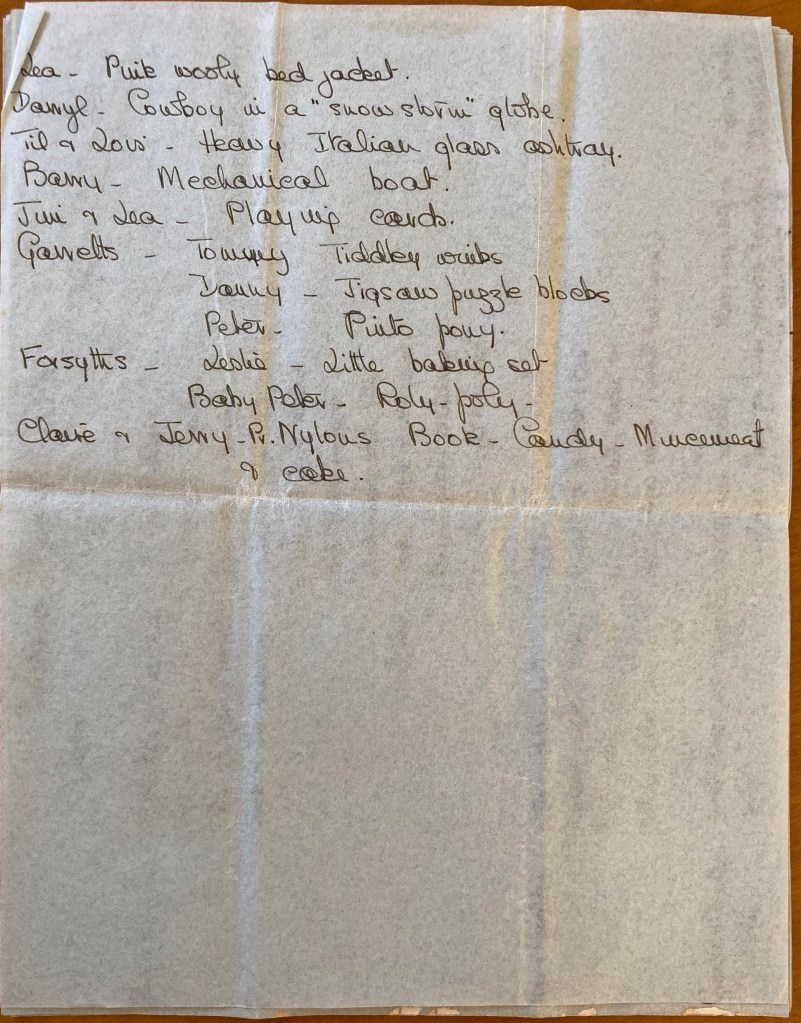 Lea - Pink wooly bed jacket.
Darryl - Cowboy in a "snow storm" globe.
Til & Lois - Heavy Italian glass ashtray.
Barry - Mechanical boat.
Jim & Lea - Playing cards.
Garretts - Tommy Tiddley winks
Danny - Jigsaw puzzle blocks
Peter - Pinto pony.
Forsyths - Leslie - Little baking set
Baby Peter - Roly-poly -
Claire & Jerry - Pr. Nylons Book - Candy - Mincemeat
& cake.